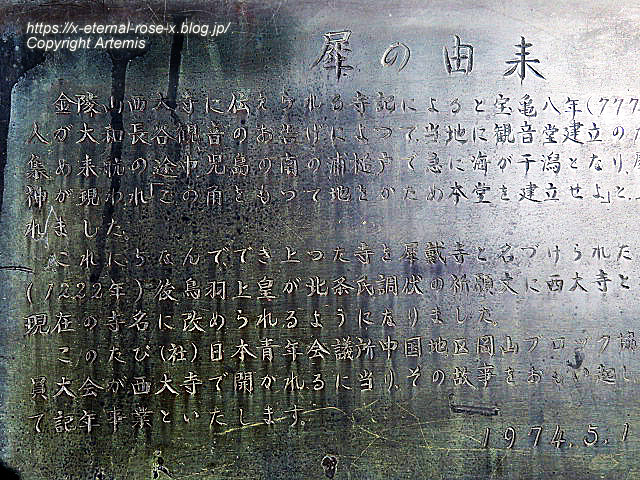 https://x-eternal-rose-x.blog.jp/
Copyright Artemis
犀の由来
金陵山西大寺に伝えられる寺記によると宝亀八年(777
人が大和長谷観音のお告げによって、当地に観音堂建立の
集め来航の途中児島の南の浦槌戸で急に海が干潟となり、
神が現われ「この角をもって地をかため本堂を建立せよ」と、
れました。
これにちなんで、でき上った寺を犀戴寺と名づけられた
(1222年)後鳥羽上皇が北条氏調伏の祈願文に西大寺と
現在の寺名に改められるようになりました。
このたび(社)日本青年会議所中国地区岡山ブロック
員大会が西大寺で開かれるに当り、その故事をおもい起し
て記年事業といたします。
1974.5.1